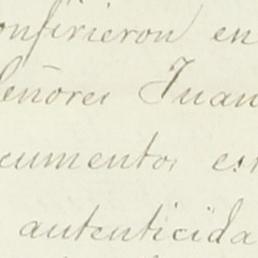 onfirieron en
eñores Juan
cumentos es
autenticida